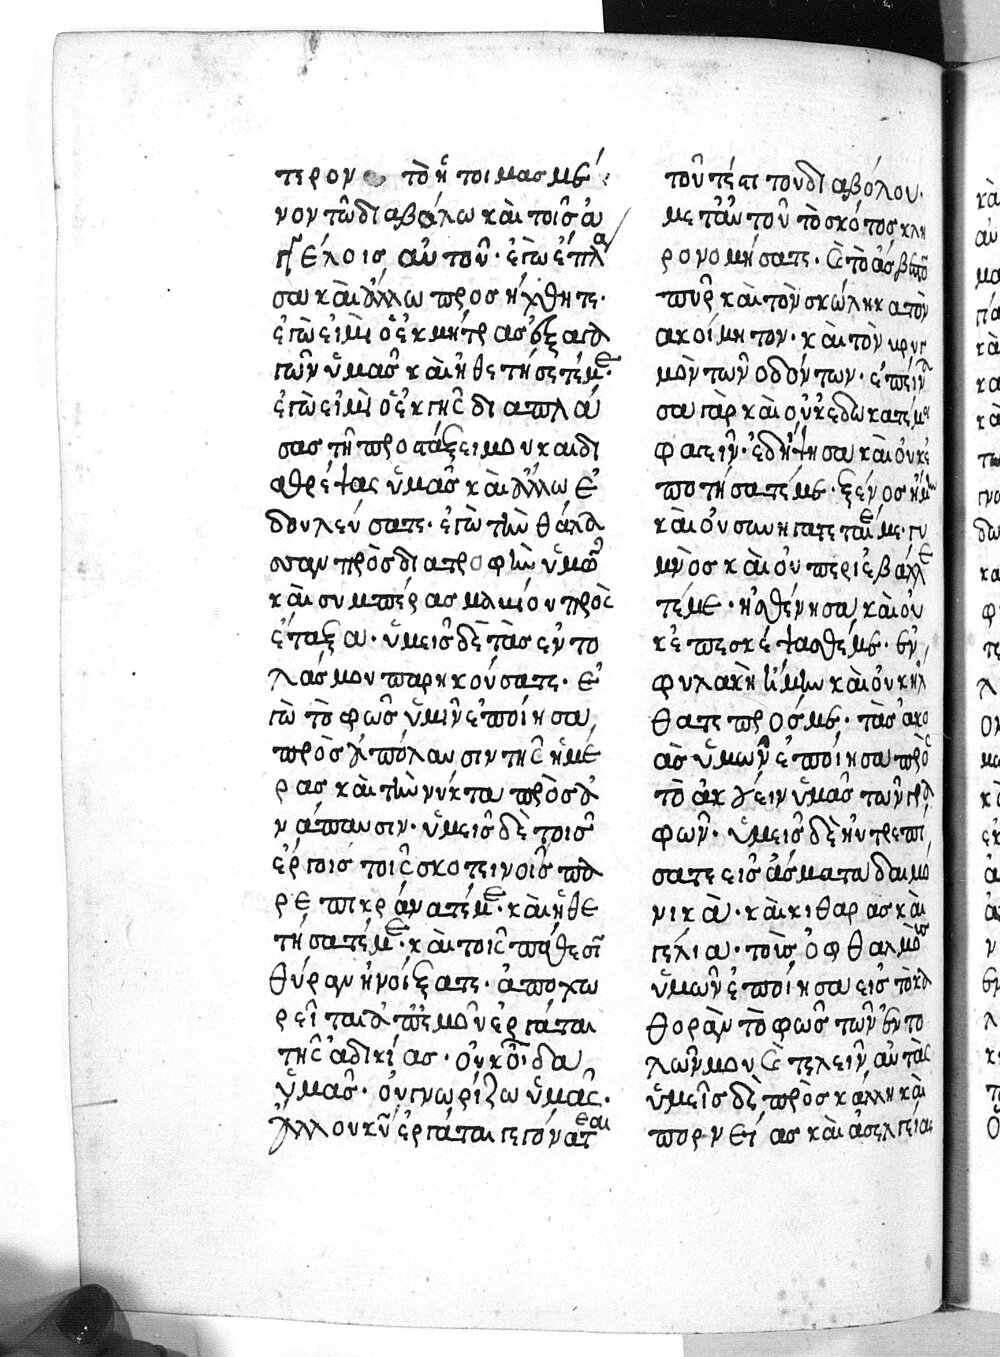 τερον τὸ ἡτοιμασμέ
νον τῶ διαβόλω καὶ τοῖσ ἀ
γγέλοισ αὐτοῦ· ἐγὼ ἔπλα
σα καὶ ἄλλω προσήχθητε·
ἐγὼ εἰμὶ ὁ ἐκ μήτρασ ἐξαγα
γὼν ὑμᾶσ καὶ ἠθετήσετέ με·
ἐγὼ εἰμὶ ὁ ἐκ γῆσ διαπλά
σασ τῆ προτάξει μου καὶ δι
αθρέψας ὑμᾶσ καὶ ἄλλω ἐ
δουλεύσατε· ἐγὼ τὴν θάλα
σσαν πρὸσ διατροφὴν ὑμῶν
καὶ συμπέρασμα βίου πρὸς
ἔταξα· ὑμεῖσ δὲ τὰσ ἐντο
λάσ μου παρηκούσατε· ἐ
γὼ τὸ φῶσ ὑμῖν ἐποίησα
πρὸσ ἀπόλαυσιν τῆσ ἡμέ
ρασ καὶ τὴν νύκτα πρὸσ ἀ
νάπαυσιν· ὑμεῖσ δὲ τοῖσ
ἔργοισ τοῖσ σκοτεινοῖσ πα
ρεπικράνατέ με· καὶ ἠθε
τήσατέ με· καὶ τοῖσ πάθεσι
θύραν ἠνοίξατε· ἀποχω
ρεῖται ἀπ' ἐμοῦ ἐργάται
τῆσ ἀδικίασ· οὐκ οἶδα
ὑμᾶσ· οὐ γνωρίζω ὑμᾶς·
ἄλλου κυ ἐργάται γεγόνατε
τοῦτέστι τοῦ διαβόλου·
μετ' αὐτοῦ τὸ σκότοσ κλη
ρονομήσατε· καὶ τὸ ἄσβεστον
πῦρ καὶ τὸν σκώληκα τὸν
ἀκοίμητον· καὶ τὸν βρυγ
μὸν τῶν ὀδόντων· ἐπείνα
σα γὰρ καὶ οὐκ ἐδώκατέ μοι
φαγεῖν· ἐδίψησα καὶ οὐκ ἐ
ποτήσατέ με· ξένοσ ἤμην
καὶ οὐ συνηγάγετέ με· γυ
μνὸσ καὶ οὐ περιεβάλλε
τέ με· ἠσθένησα καὶ οὐ
κ ἐπεσκέψασθέ με· ἐν
φυλακῆ ἤμην καὶ οὐκ ἤλ
θατε προσ με· τὰσ ἀκο
ὰσ ὑμῶν ἐποίησα πρὸς
τὸ ἀκούειν ὑμᾶσ τῶν γρα
φῶν· ὑμεῖσ δὲ ηὐτρεπί
σατε εἰσ ἄσματα δαιμο
νικὰ· καὶ κιθάρασ καὶ
γέλια· τοὺσ ὀφθαλμοὺσ
ὑμῶν ἐποίησα εἰσ τὸ κα
θορᾶν τὸ φῶσ τῶν ἐντο
λῶν μου καὶ τελεῖν αὐτὰς
ὑμεῖσ δὲ πρὸσ κάλλη καὶ
πορνείασ καὶ ἀσελγείας